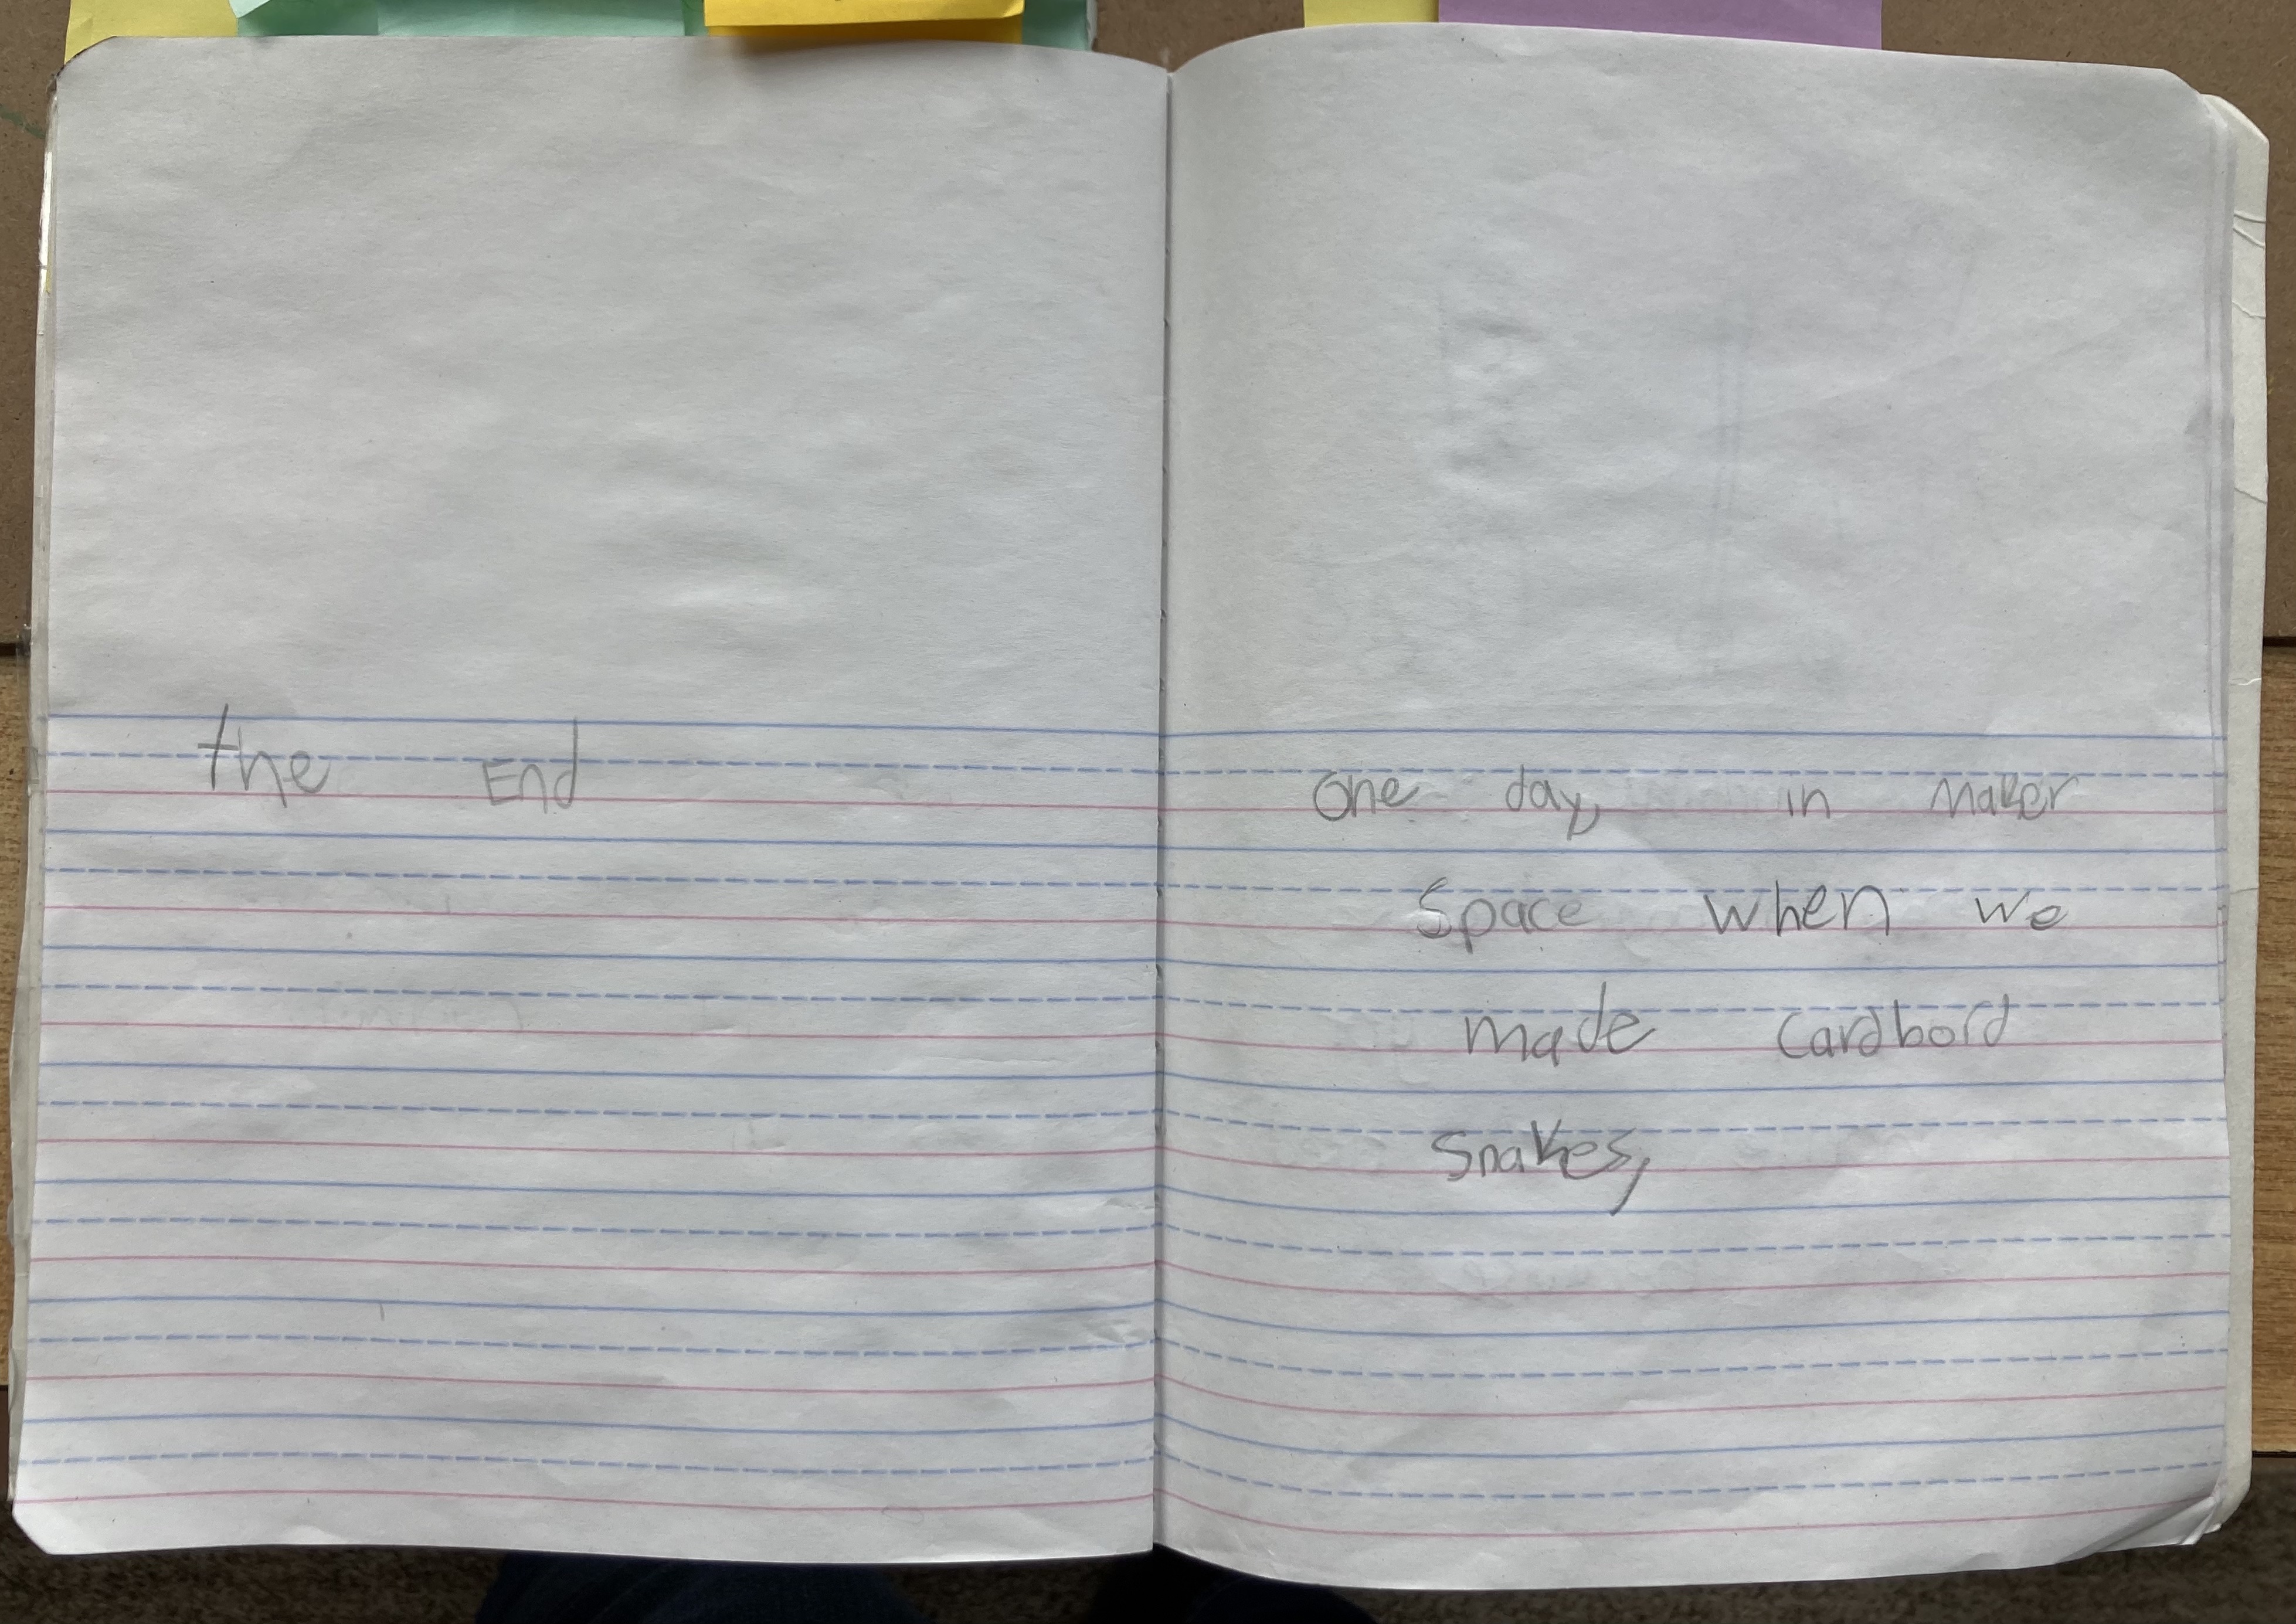 the End
One day, in Maker
Space when we
made cardbord
Snakes,